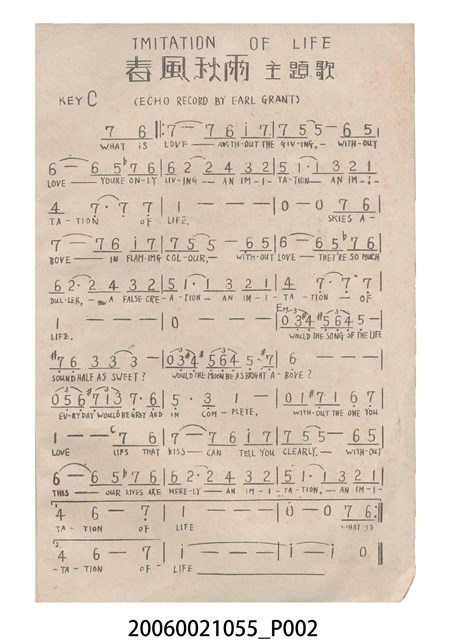 IMITATION OF LIFE
春風秋雨 主題歌
KEY C (ECHO RECORD BY EARL GRANT)
7 6 |: 7 — 7 6 i 7 | 7 5 5 — 6 5 |
WHAT IS LOVE — WITH-OUT THE GIV-ING, — WITH-OUT
6 — 6 5 b7 6 | 6 2 2 4 3 2 | 5 1 · 1 3 2 1 |
LOVE — YOU'RE ON-LY LIV-ING — AN IM-I-TA-TION — AN IM-I-
4 7 · 7 7 | 1 — — | 0 — 0 7 6 |
TA-TION OF LIFE. SKIES A-
7 — 7 6 i 7 | 7 5 5 — 6 5 | 6 — 6 5 b7 6 |
BOVE — IN FLAMING COL-OUR, — WITH-OUT LOVE — THEY'RE SO MUCH
6 2 · 2 4 3 2 | 5 1 · 1 3 2 1 | 4 7 · 7 7 |
DUL-LER, — A FALSE CRE-A-TION — AN IM-I-TA-TION — OF
1 — — | 0 — — | Em 0 3 4 #5 6 4 5 — |
LIFE. WOULD THE SONG OF THE LIFE
#7 6 3 3 3 — | 0 3 #4 #5 6 4 5 #7 | 6 — — |
SOUND HALF AS SWEET? WOULD THE MOON BE AS BRIGHT A-BOVE?
0 5 6 #7 1 3 7 · 6 | 5 · 3 1 — | 0 1 #7 1 6 7 |
EV-RY DAY WOULD BE GREY AND IN COM-PLETE, WITH-OUT THE ONE YOU
1 — — C 7 6 | 7 — 7 6 i 7 | 7 5 5 — 6 5 |
LOVE LIPS THAT KISS — CAN TELL YOU CLEARLY. — WITH-OUT
6 — 6 5 b7 6 | 6 2 · 2 4 3 2 | 5 1 · 1 3 2 1 |
THIS — OUR LIVES ARE MERE-LY — AN IM-I-TA-TION. — AN IM-I-
1. 4 6 — 7 | 1 — — | 0 — 0 7 6 :|
TA-TION OF LIFE WHAT IS
2. 4 6 — 7 | i — — | i — i 0 ||
-TA-TION OF - LIFE
20060021055_P002